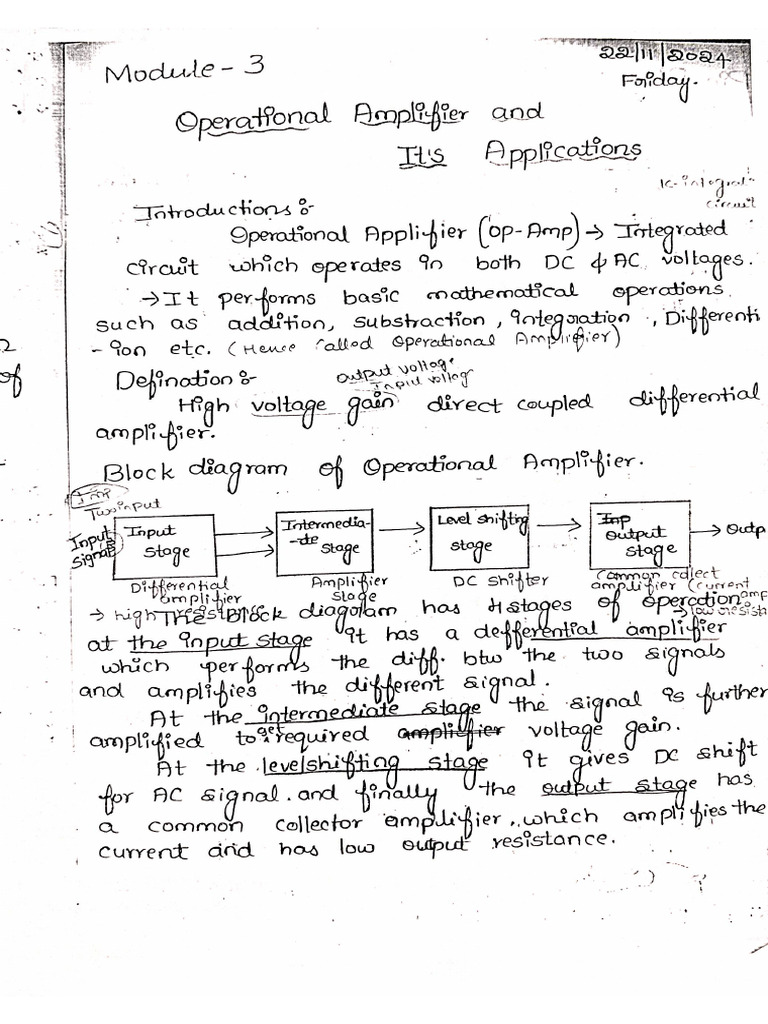 22/11/2024
Module - 3
Friday.
Operational Amplifier and
It's Applications
IC-integral
circuit
Introductions :-
Operational Applifier (Op-Amp) → Integrated
circuit which operates in both DC & AC voltages.
→ It performs basic mathematical operations
such as addition, substraction, integration, Differenti
-ion etc. (Hence called Operational Amplifier)
of
Defination :-
Output voltage
Input voltag
High voltage gain direct coupled differential
amplifier.
Block diagram of Operational Amplifier.
Imp
Two input
Input
Signal
Input
stage
Intermedia-
-te
stage
Level shifting
stage
Inp
output
stage
→ Outp
Differential
amplifier
Amplifier
stage
DC shifter
Common collect
amplifier (current
amp
→ high resistance
→ low resista
The Block diagram has 4 stages of operation
at the input stage it has a defferential amplifier
which performs the diff. btw the two signals
and amplifies the different signal.
At the intermediate stage the signal is further
amplified to get required amplifier voltage gain.
At the levelshifting stage it gives DC shift
for AC signal. and finally the output stage has
a common collector amplifier, which amplifies the
current and has low output resistance.